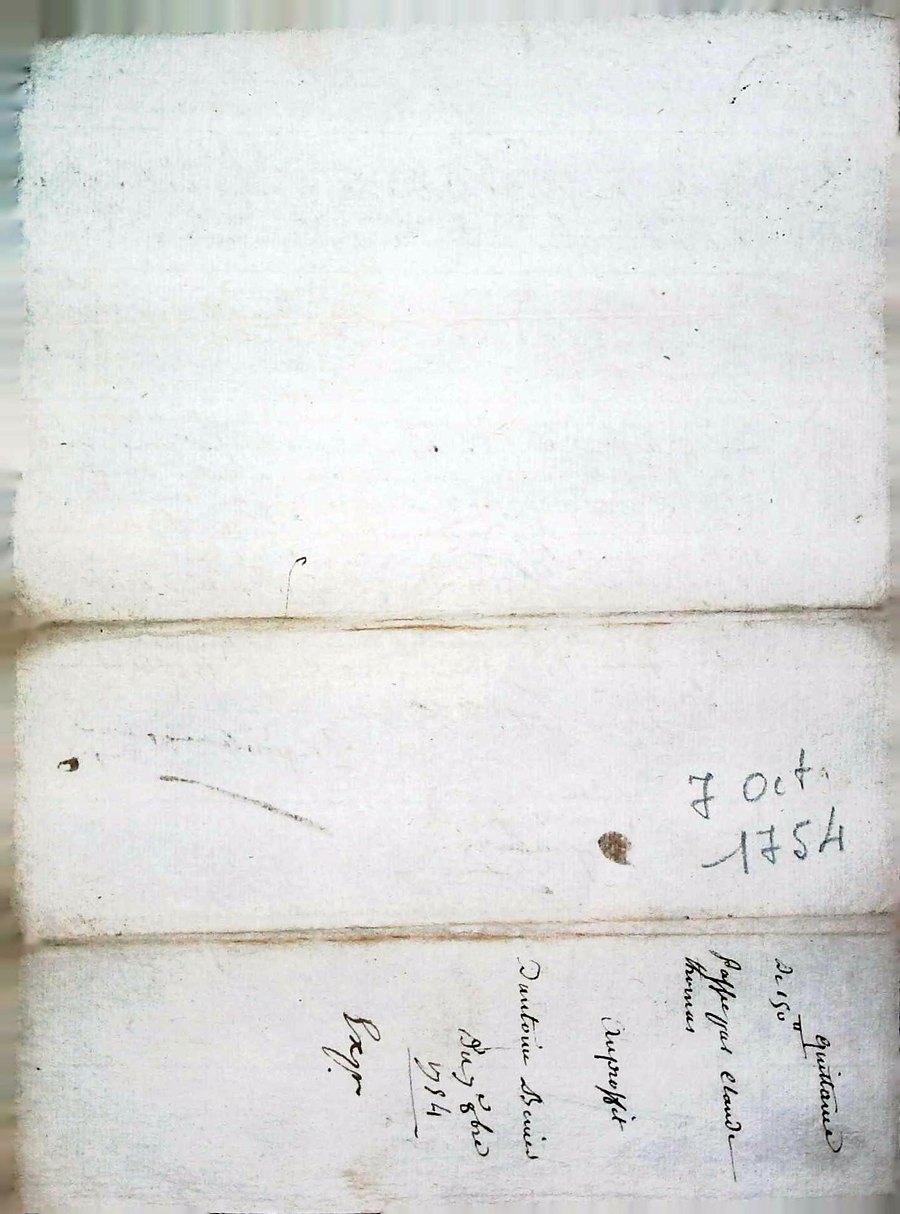 7 Oct.
1754
Quittance
De 150 ₶
passé par Claude
thomas
Au proffit
D'antoine
Du 7e 8bre
1754
Exp.